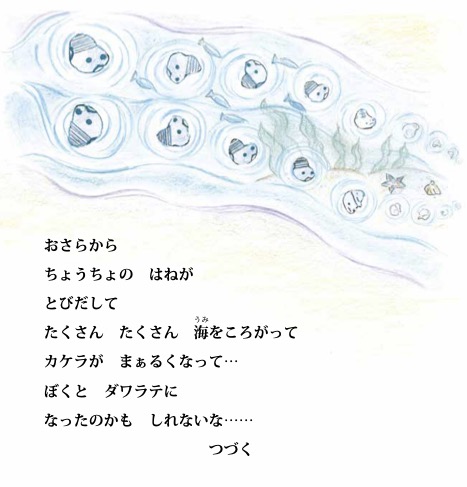 おさらから
ちょうちょの　はねが
とびだして
たくさん　たくさん　海をころがって
カケラが　まぁるくなって…
ぼくと　ダワラテに
なったのかも　しれないな……
つづく